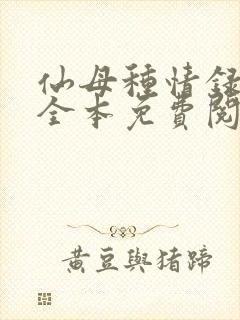 仙母種情録
全本免費閱
黃豆與猪蹄